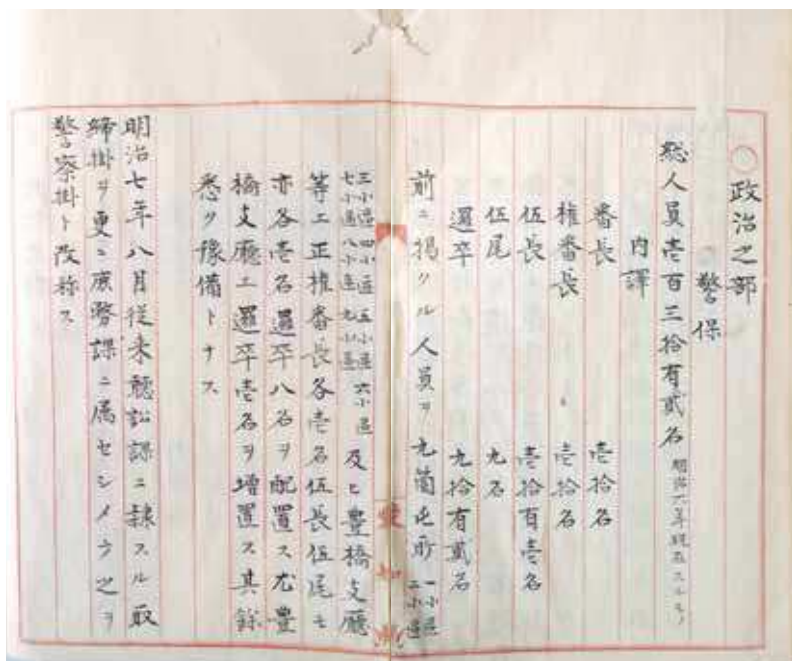 ○政治之部
警保
総人員壱百三拾有貳名 明治六年現在スルモノ
内譯
番長 壱拾名
権番長 壱拾名
伍長 壱拾有壱名
伍尾 九名
邏卒 九拾有貳名
前ニ掲クル人員ヲ九箇屯所 一小區 二小區
三小區 四小區 五小區 六小區 七小區 八小區 九小區 及ヒ豊橋支廳
等ニ正権番長各壱名伍長伍尾モ
亦各壱名邏卒八名ヲ配置ス尤豊
橋支廳ニ邏卒壱名ヲ増置ス其餘
悉ク豫備トナス
明治七年八月従来聴訟課ニ隷スル取
締掛ヲ更ニ庶務課ニ属セシメラ之ヲ
警察掛ト改称ス
愛知